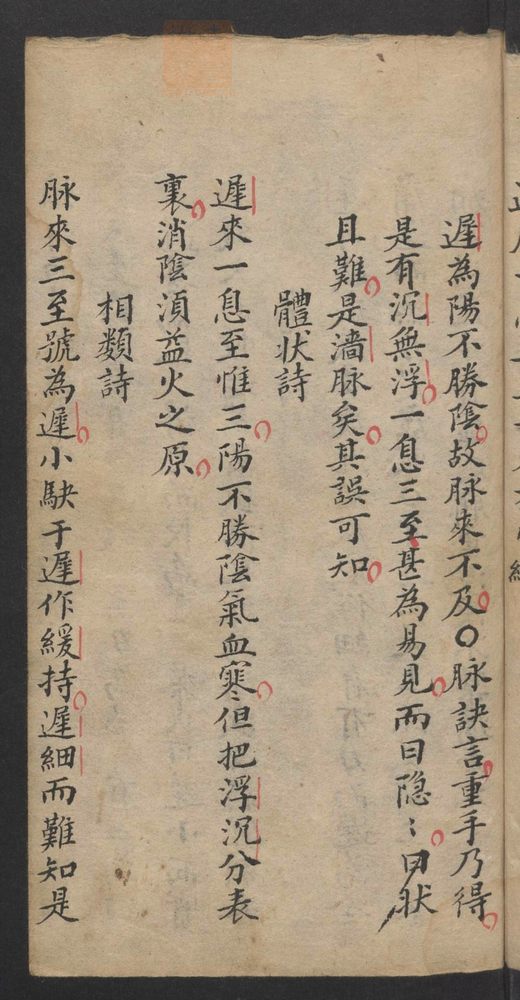 遲為陽不勝陰故脉來不及〇脉訣言重手乃得
是有沉無浮一息三至甚為易見而曰隐〻曰状
且難是濇脉矣其誤可知
體状詩
遲來一息至惟三陽不勝陰氣血寒但把浮沉分表
裏消陰湏益火之原
相類詩
脉來三至號為遲小駃于遲作緩持遲細而難知是